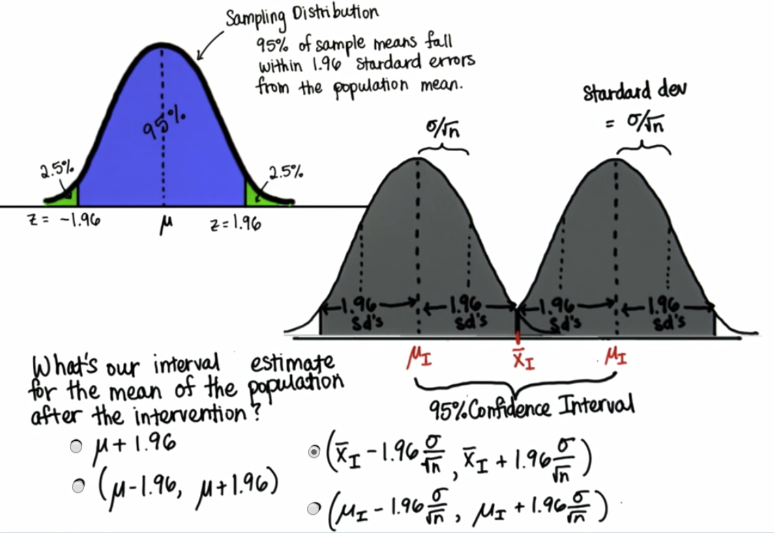 Sampling Distribution
95% of sample means fall
within 1.96 standard errors
from the population mean.
95%
2.5%
2.5%
z = -1.96
μ
z = 1.96
σ/√n
Standard dev
= σ/√n
1.96
sd's
1.96
sd's
1.96
sd's
1.96
sd's
μI
x̄I
μI
95% Confidence Interval
What's our interval estimate
for the mean of the population
after the intervention?
μ + 1.96
(μ-1.96, μ+1.96)
(x̄I - 1.96 σ/√n, x̄I + 1.96 σ/√n)
(μI - 1.96 σ/√n, μI + 1.96 σ/√n)